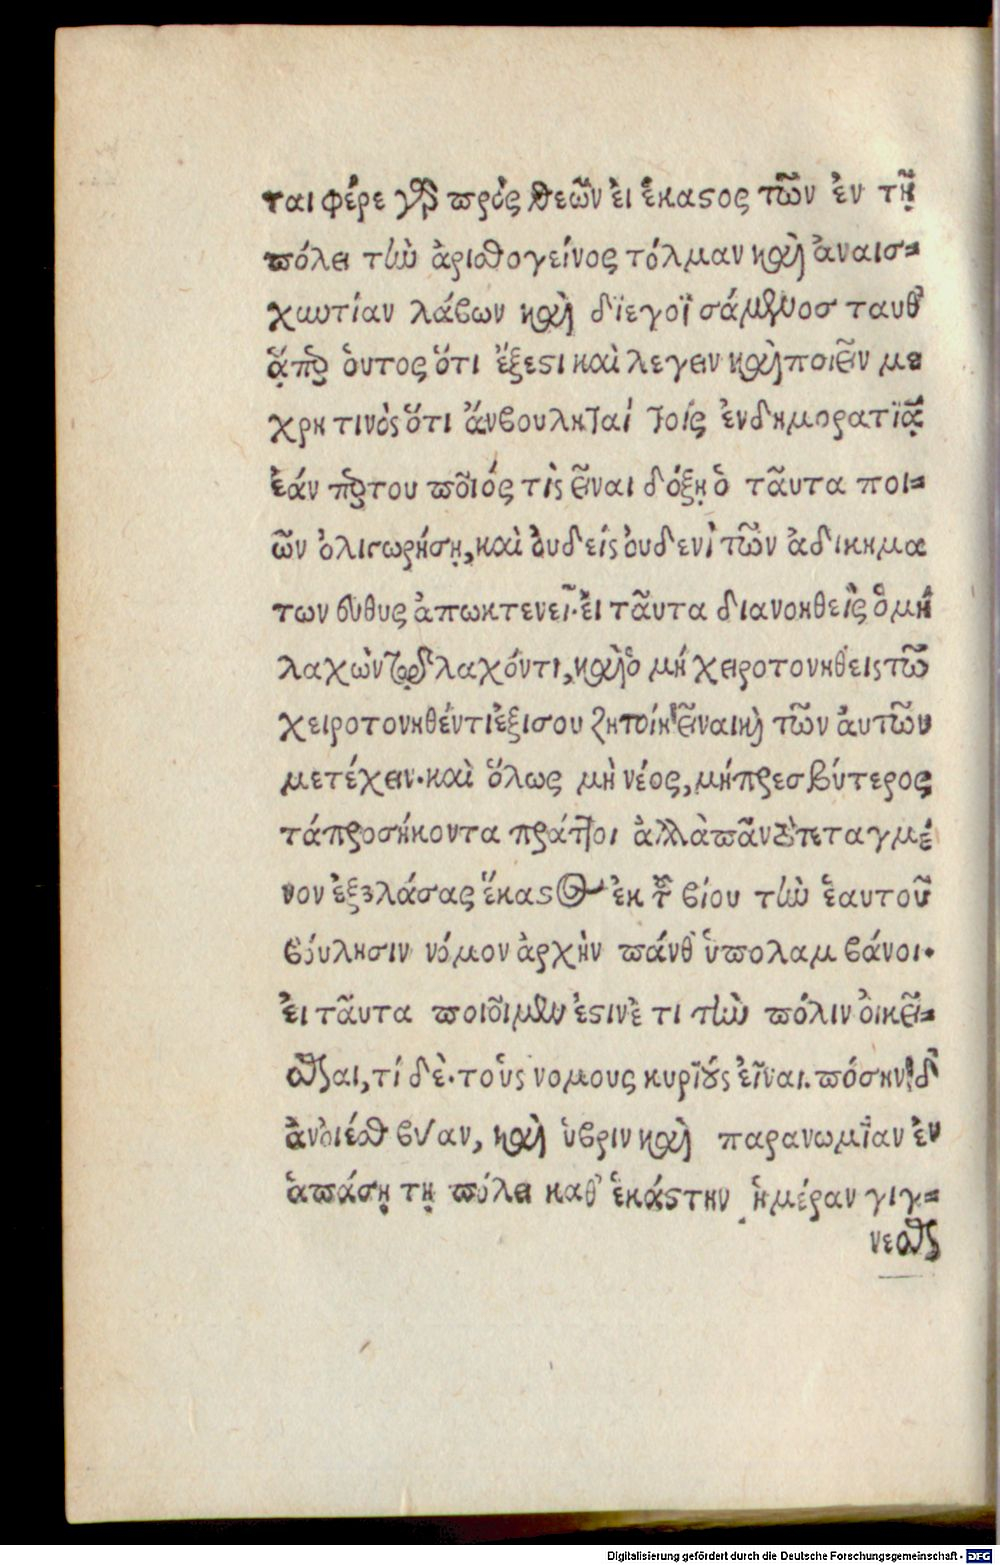 ται φέρε γὰρ πρὸς θεῶν ἐι ἑκαστος τῶν ἐν τῇ
πόλει τὴν ἀριστογείνος τόλμαν καὶ ἀναισ=
χυντίαν λάβων καὶ δϊεγοϊσάμενοσ ταυθ'
ἅπερ ὁυτος ὅτι ἔξεστι καὶ λεγειν καὶ ποιεῖν με
χρη τινὸς ὅτι ἄνβουληται τοίς ἐνδημορατϊᾳ
ἐάν περ του ποῖός τὶς εῖναι δόξῃ ὁ τᾶυτα ποι=
ῶν ὀλιγωρήσῃ, καὶ ὀυδείς ὀυδενὶ τῶν ἀδικημα
των ευθυς ἀπωκτενεῖ. ἐι τᾶυτα διανοηθεὶς ὁ μὴ
λαχὼν τῷ λαχόντι, καὶ ὁ μή χειροτονηθεὶς τῶ
χειροτονηθέντι ἐξισου ζητοίη εῖναι καὶ τῶν ἀυτῶν
μετέχειν. καὶ ὅλως μὴ νέος, μήπρεσβύτερος
τάπροσήκοντα πράττοι ἀλλὰ πᾶν τὸ τεταγμέ
νον ἐξελάσας ἕκαστος ἐκ τοῦ βίου τὴν ἑαυτοῦ
βόυλησιν νόμον ἀρχὴν πάνθ' ὑπολαμβάνοι.
ἐι τᾶυτα ποιοῖμεν ἐστινὲ τι τὴν πόλιν ὀικεῖ=
σθαι, τί δὲ. τοὺς νομους κυρϊούς εἶναι. πόσην δ'
ἀνοιέσθε βίαν, καὶ ὑβριν καὶ παρανωμΐαν ἐν
ἁπάσῃ τῃ πόλει καθ' ἑκάστην ἡμέραν γιγ=
νεσθαι
Digitalisierung gefördert durch die Deutsche Forschungsgemeinschaft - DFG